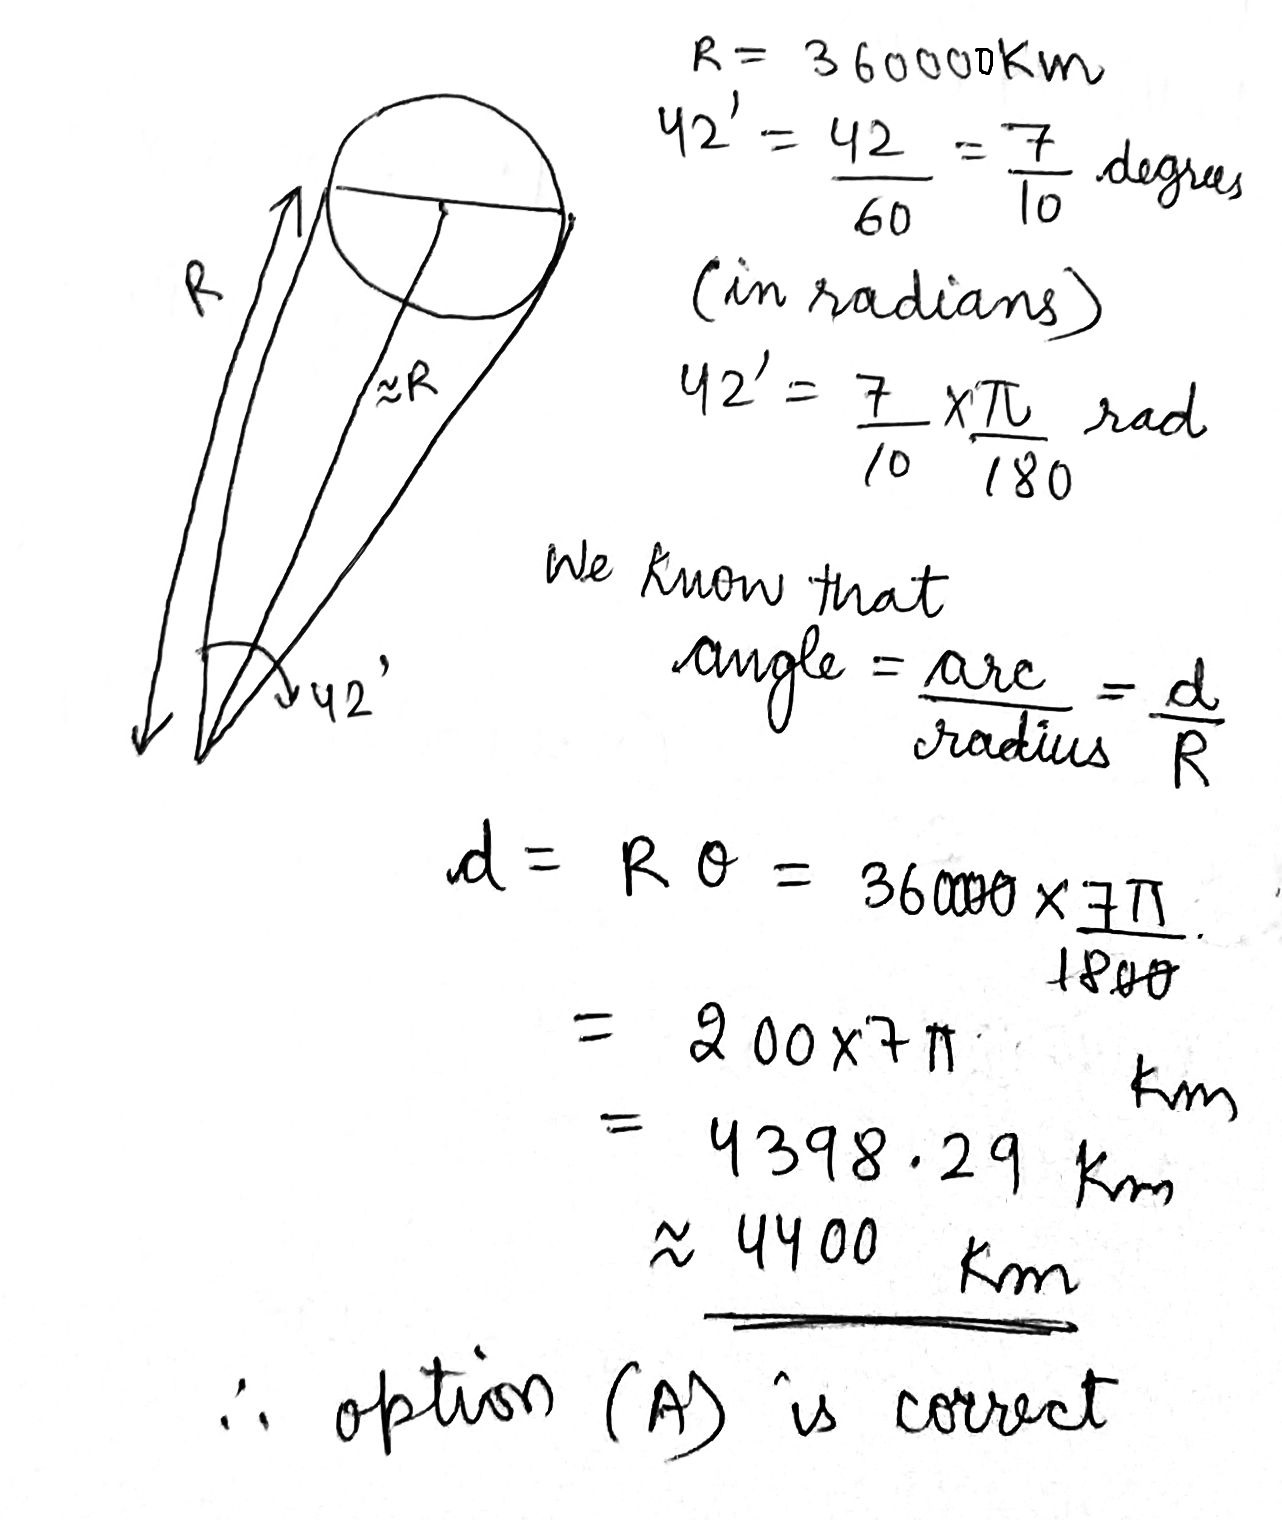 R = 360000Km
42' = 42/60 = 7/10 degrees
(in radians)
42' = 7/10 × π/180 rad
R
≈R
42'
We know that
angle = arc/radius = d/R
d = R θ = 360000 × 7π/1800
= 200×7π Km
= 4398.29 Km
≈ 4400 Km
∴ option (A) is correct